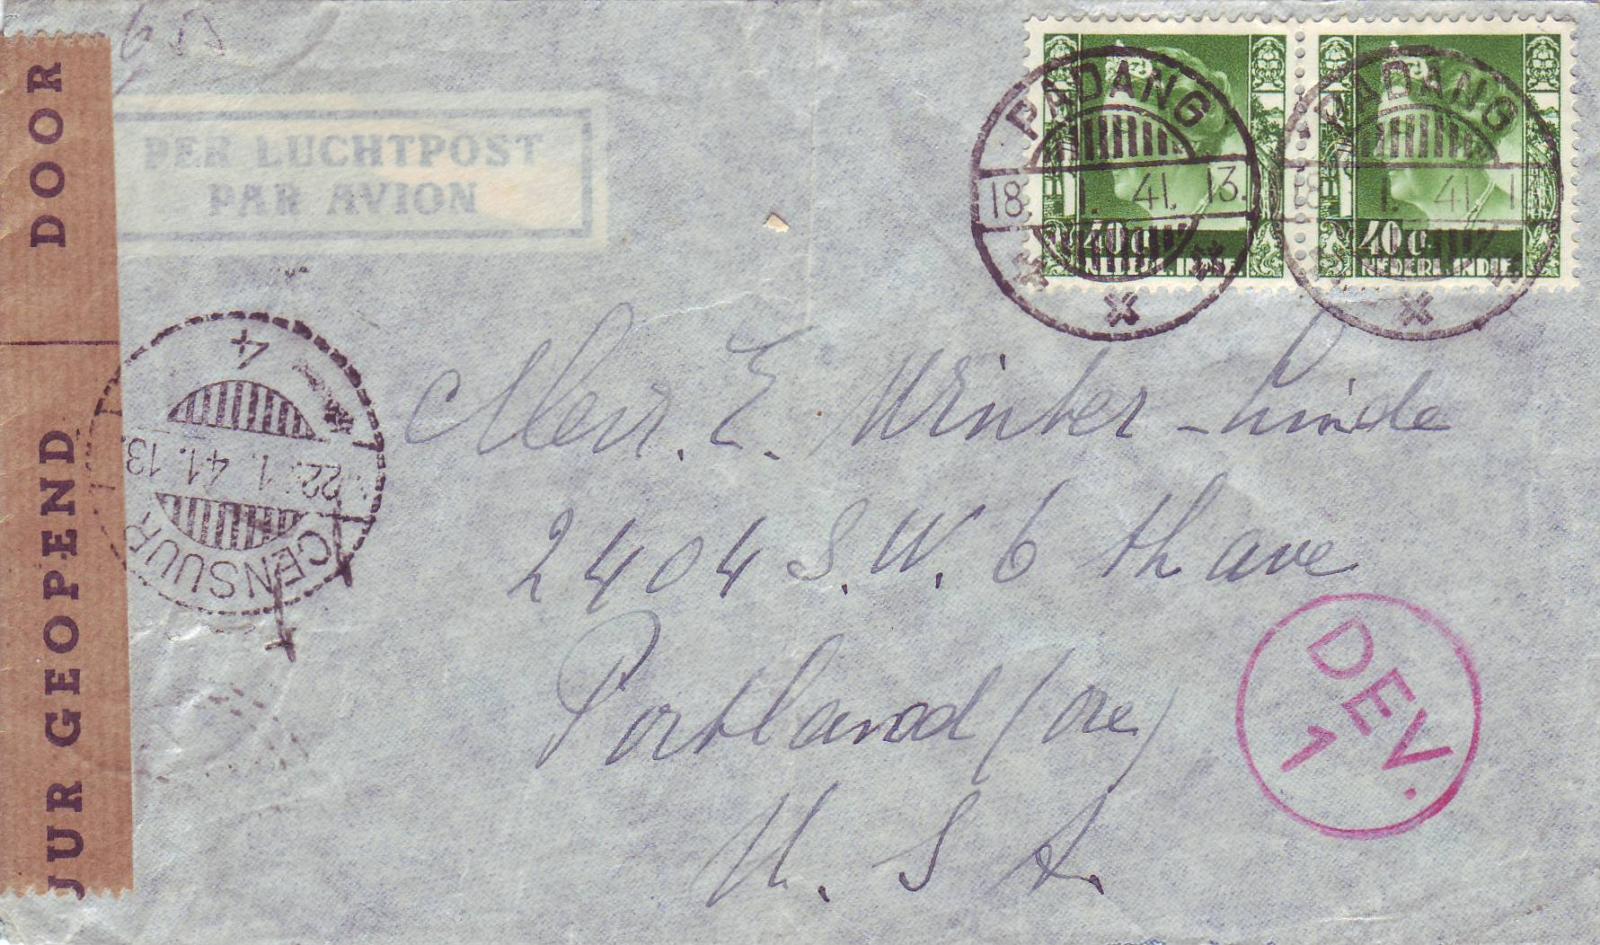 DOOR
JUR GEOPEND
PER LUCHTPOST
PAR AVION
PADANG
18. 1. 41. 13.
40 c.
NEDERL. INDIE
PADANG
18. 1. 41. 1
40 c.
NEDERL. INDIE
4
22. 1. 41. 13.
CENSUUR
E. Winter-Linde
2404 S.W. 6 th ave
Portland (Ore)
U. S. A.
DEV.
1